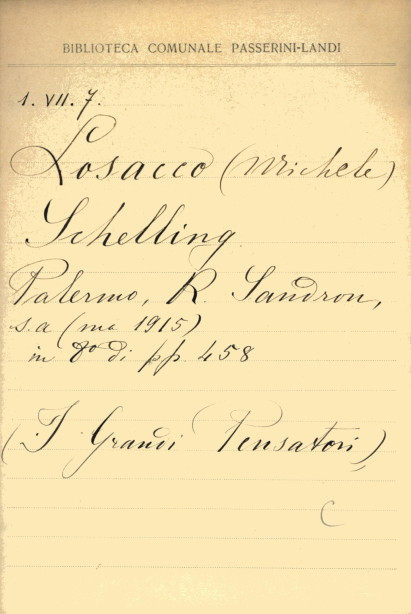 BIBLIOTECA COMUNALE PASSERINI-LANDI
1. VII. 7.
Losacco (Michele)
Schelling.
Palermo, R. Sandron,
s. a (ma 1915)
in 8° di pp. 458
(I Grandi Pensatori)
C